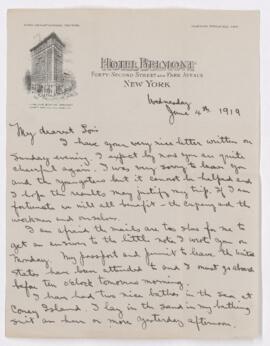 HOTEL BELMONT
FORTY-SECOND STREET AND PARK AVENUE
NEW YORK
Wednesday
June 4th 1919
My dearest
I have your very nice letter written on
Sunday evening. I expect by not you are quite
cheerful again. I was very sorry to leave you
and the youngsters but it cannot be helped and
I hope the results may justify my trip. If I am
fortunate we will all benefit - the company and the
workmen and ourselves.
I am afraid the mails are too slow for me to
get an answer to the little note I wrote you on
Monday. My passport and permit to leave the United
States have been attended to and I must go aboard
before ten o'clock tomorrow morning.
I have had two nice bathes in the sea at
Coney Island. I lay in the sand in my bathing
suit an hour or more yesterday afternoon.